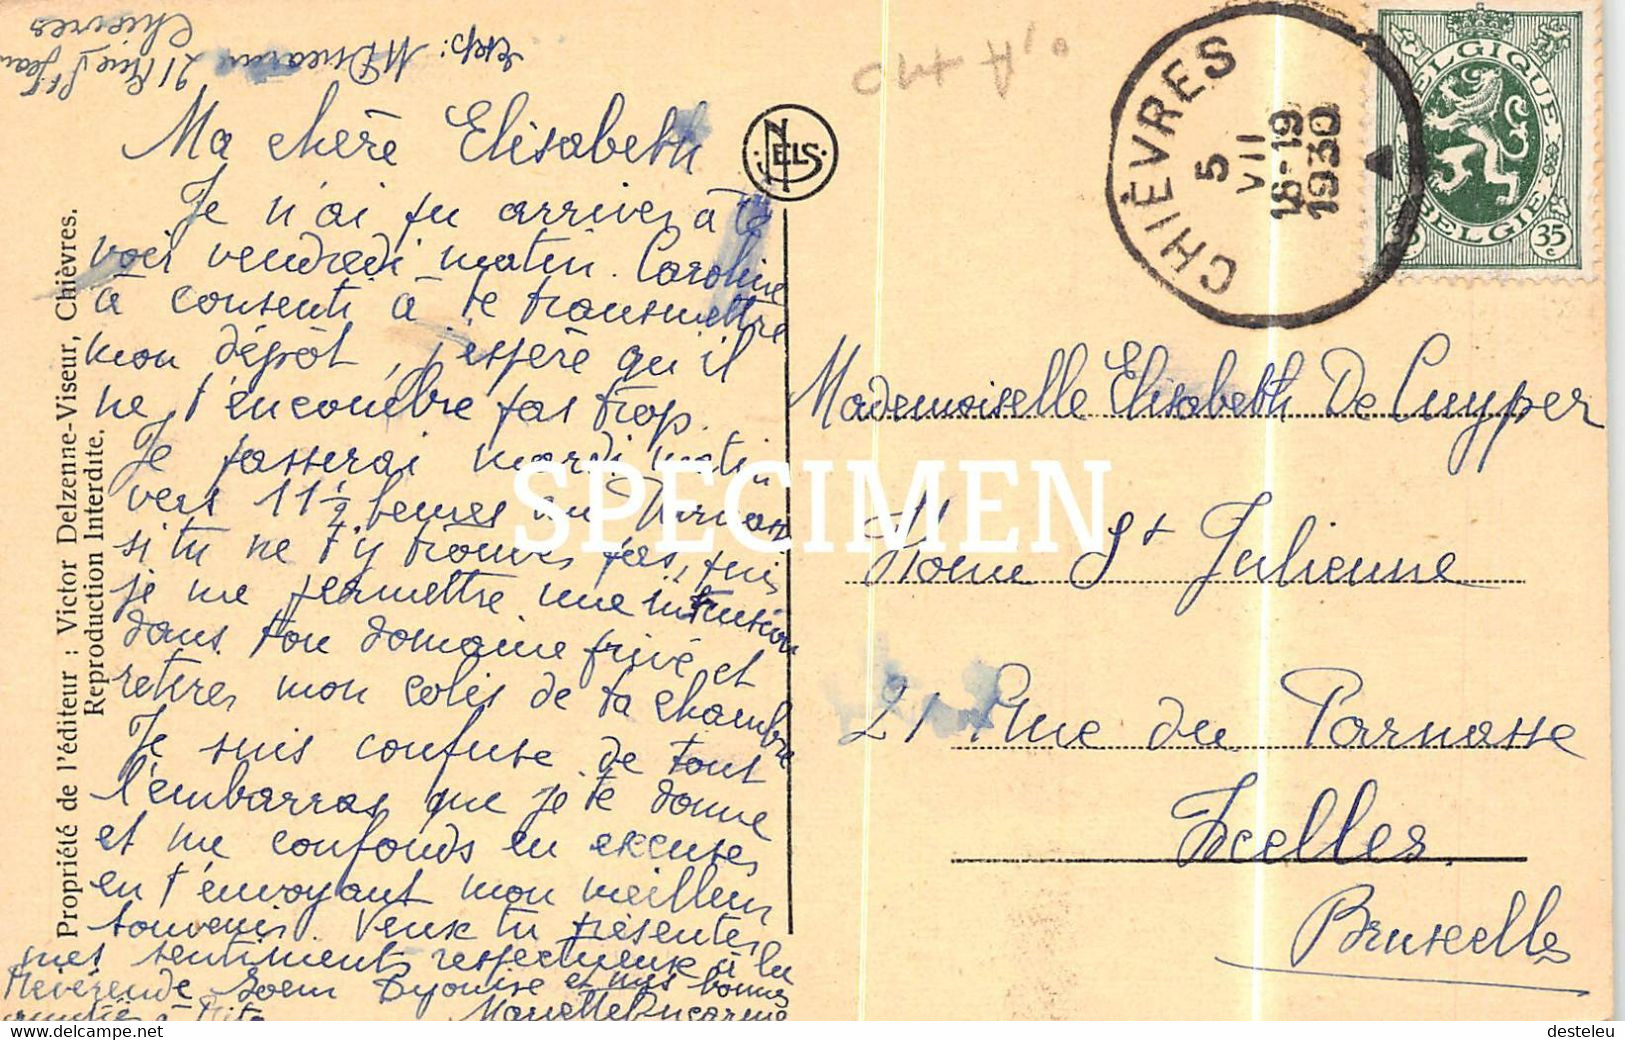 exp: M Ducarme 21 Rue St Jean
Chièvres
Ma chère Elisabeth
Je n'ai pu arriver à te
voir vendredi matin. Caroline
à consenti à te transmettre
mon dépôt, j'espère qu'il
ne t'encombre pas trop.
Je passerai mardi matin
vers 11 1/2 heures au Parnasse
si tu ne t'y trouves pas, puis
je me permettre une intrusion
dans ton domaine privé et
retirer mon colis de ta chambre
Je suis confuse de tout
l'embarras que je te donne
et me confonds en excuses
en t'envoyant mon meilleur
souvenir. Veux tu présenter
mes sentiments respectueux à la
Révérende Soeur Dyonise et mes bonnes
amitiés à Rita
Mariette Ducarme
Propriété de l'éditeur : Victor Delzenne-Viseur, Chièvres.
Reproduction Interdite.
NELS
CHIÈVRES
5
VII
18-19
1930
BELGIQUE
BELGIE
35
c
Mademoiselle Elisabeth De Cuyper
Home St Julienne
21 Rue du Parnasse
Ixelles.
Bruxelles
SPECIMEN
http://www.delcampe.net
desteleu